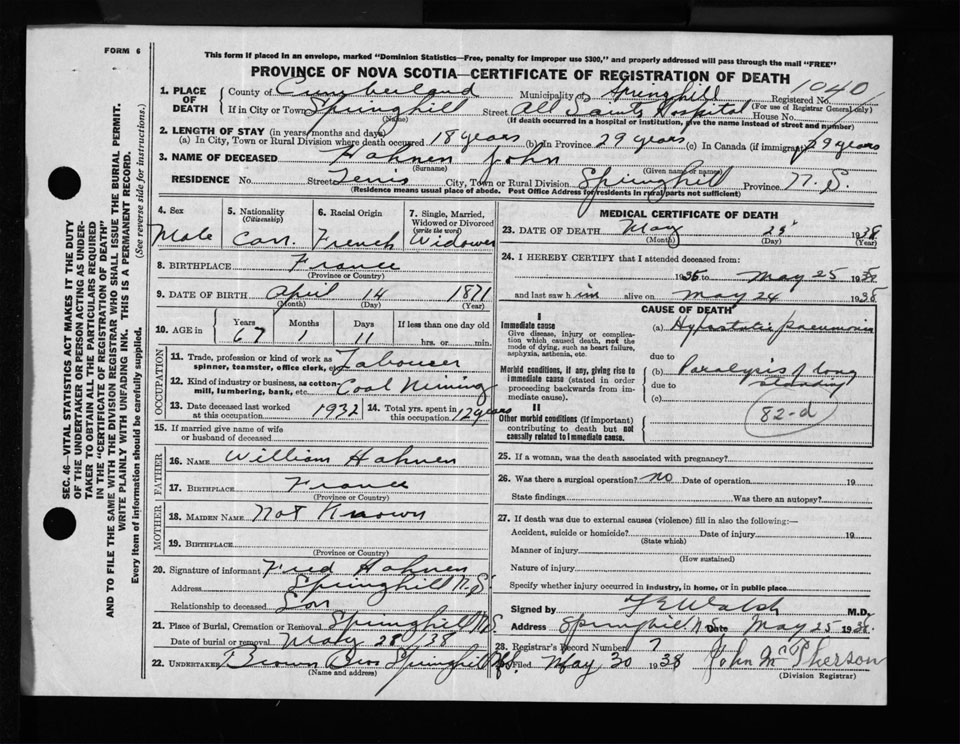 FORM 6
This form if placed in an envelope, marked "Dominion Statistics—Free, penalty for improper use $300," and properly addressed will pass through the mail "FREE"
PROVINCE OF NOVA SCOTIA—CERTIFICATE OF REGISTRATION OF DEATH
1. PLACE OF DEATH County of Cumberland Municipality of Springhill Registered No. 1040
(For use of Registrar General only)
If in City or Town Springhill Street All Saints Hospital House No.
(Name) (If death occurred in a hospital or institution, give the name instead of street and number)
2. LENGTH OF STAY (in years, months and days)
(a) In City, Town or Rural Division where death occurred 18 years (b) In Province 29 years (c) In Canada (if immigrant) 29 years
3. NAME OF DECEASED Hahnen John
(Surname) (Given name or names)
RESIDENCE No. Street Tenis City, Town or Rural Division Springhill Province N.S.
(Residence means usual place of abode. Post Office Address for residents in rural parts not sufficient)
4. Sex Male
5. Nationality (Citizenship) Can.
6. Racial Origin French
7. Single, Married, Widowed or Divorced (write the word) Widower
8. BIRTHPLACE France
(Province or Country)
9. DATE OF BIRTH April 14 1871
(Month) (Day) (Year)
10. AGE in Years Months Days If less than one day old
67 1 11 hrs. or min.
OCCUPATION
11. Trade, profession or kind of work as spinner, teamster, office clerk, etc. Labourer
12. Kind of industry or business, as cotton-mill, lumbering, bank, etc. Coal Mining
13. Date deceased last worked at this occupation 1932 14. Total yrs. spent in this occupation 12 years
15. If married give name of wife or husband of deceased
FATHER
16. NAME William Hahnen
17. BIRTHPLACE France
(Province or Country)
MOTHER
18. MAIDEN NAME Not Known
19. BIRTHPLACE
(Province or Country)
20. Signature of informant Fred Hahnen
Address Springhill N.S.
Relationship to deceased Son
21. Place of Burial, Cremation or Removal Springhill N.S.
Date of burial or removal May 28 1938
22. UNDERTAKER Brown Bros Springhill N.S.
(Name and address)
MEDICAL CERTIFICATE OF DEATH
23. DATE OF DEATH May 25 1938
(Month) (Day) (Year)
24. I HEREBY CERTIFY that I attended deceased from:
1935 to May 25 1938
and last saw him alive on May 24 1938
CAUSE OF DEATH
I
Immediate cause
Give disease, injury or complication which caused death, not the mode of dying, such as heart failure, asphyxia, asthenia, etc.
(a) Hypostatic pneumonia
due to
Morbid conditions, if any, giving rise to immediate cause (stated in order proceeding backwards from immediate cause).
(b) Paralysis of long standing
due to
(c)
82-d
II
Other morbid conditions (if important) contributing to death but not causally related to immediate cause.
25. If a woman, was the death associated with pregnancy?
26. Was there a surgical operation? No Date of operation 19
State findings Was there an autopsy?
27. If death was due to external causes (violence) fill in also the following:—
Accident, suicide or homicide? Date of injury 19
(State which)
Manner of injury
(How sustained)
Nature of injury
Specify whether injury occurred in industry, in home, or in public place
Signed by Walsh M.D.
Address Springhill N.S. Date May 25 1938.
28. Registrar's Record Number 7
Filed May 30 1938 John McPherson
(Division Registrar)
SEC. 46—VITAL STATISTICS ACT MAKES IT THE DUTY
OF THE UNDERTAKER OR PERSON ACTING AS UNDER-
TAKER TO OBTAIN ALL THE PARTICULARS REQUIRED
IN THE "CERTIFICATE OF REGISTRATION OF DEATH"
AND TO FILE THE SAME WITH THE DIVISION REGISTRAR WHO SHALL ISSUE THE BURIAL PERMIT.
WRITE PLAINLY WITH UNFADING INK. THIS IS A PERMANENT RECORD.
Every item of information should be carefully supplied. (See reverse side for instructions.)